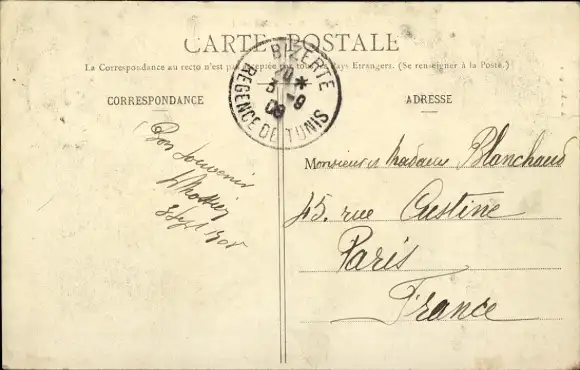 CARTE POSTALE
La Correspondance au recto n'est pas acceptée par tous les Pays Etrangers. (Se renseigner à la Poste.)
BIZERTE
20 *
3 -9
08
REGENCE DE TUNIS
CORRESPONDANCE
ADRESSE
Bon souvenir
3 Sept 1908
Monsieur et Madame Blanchaud
45. rue Custine
Paris
France